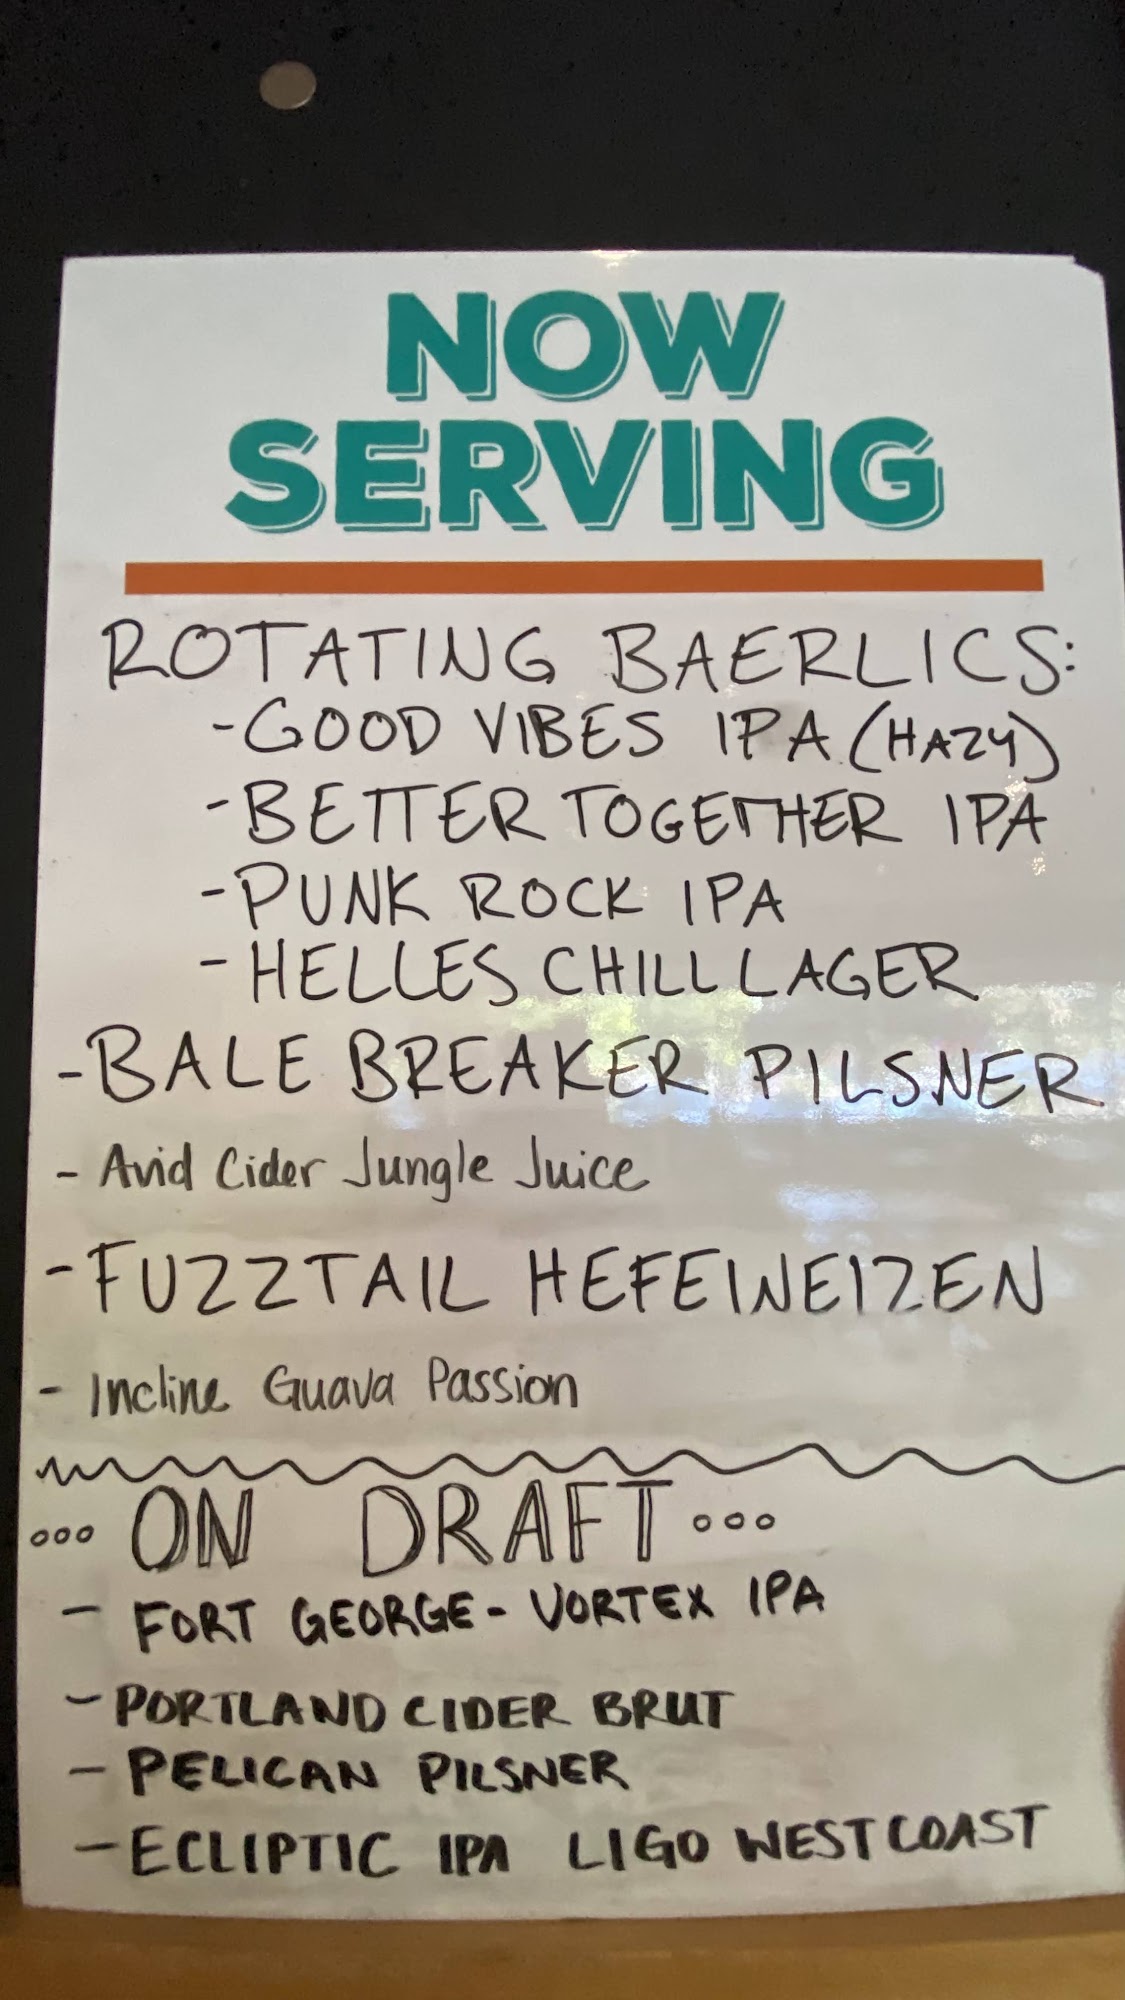 NOW
SERVING
ROTATING BAERLICS:
-GOOD VIBES IPA (HAZY)
-BETTER TOGETHER IPA
-PUNK ROCK IPA
-HELLES CHILL LAGER
-BALE BREAKER PILSNER
- Avid Cider Jungle Juice
-FUZZTAIL HEFEWEIZEN
- Incline Guava Passion
... ON DRAFT...
- FORT GEORGE- VORTEX IPA
- PORTLAND CIDER BRUT
- PELICAN PILSNER
- ECLIPTIC IPA LIGO WEST COAST